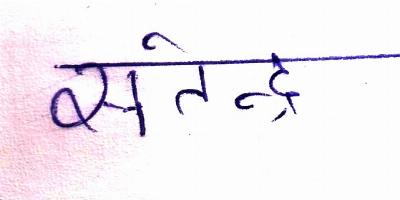 सतेन्द्र